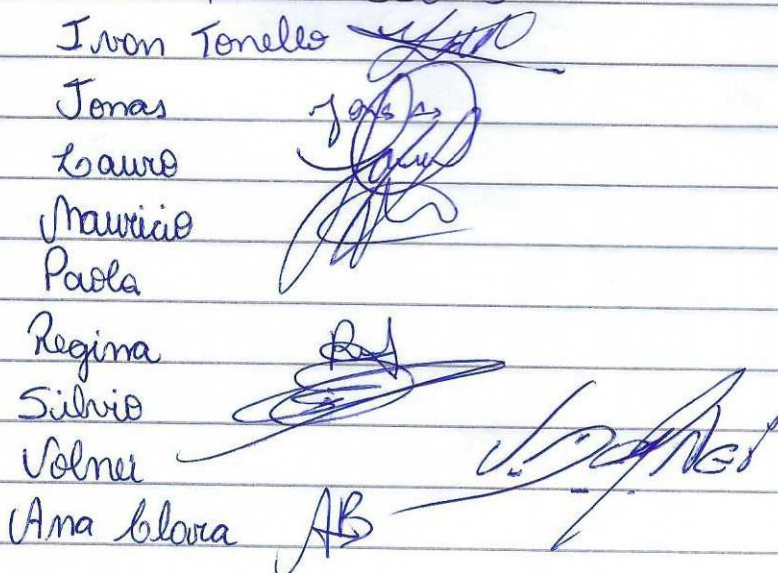 Ivan Tonello
Jonas Jonas
Lauro Lauro
Mauricio
Paola
Regina
Silvio
Volnei
Ana Clara AB